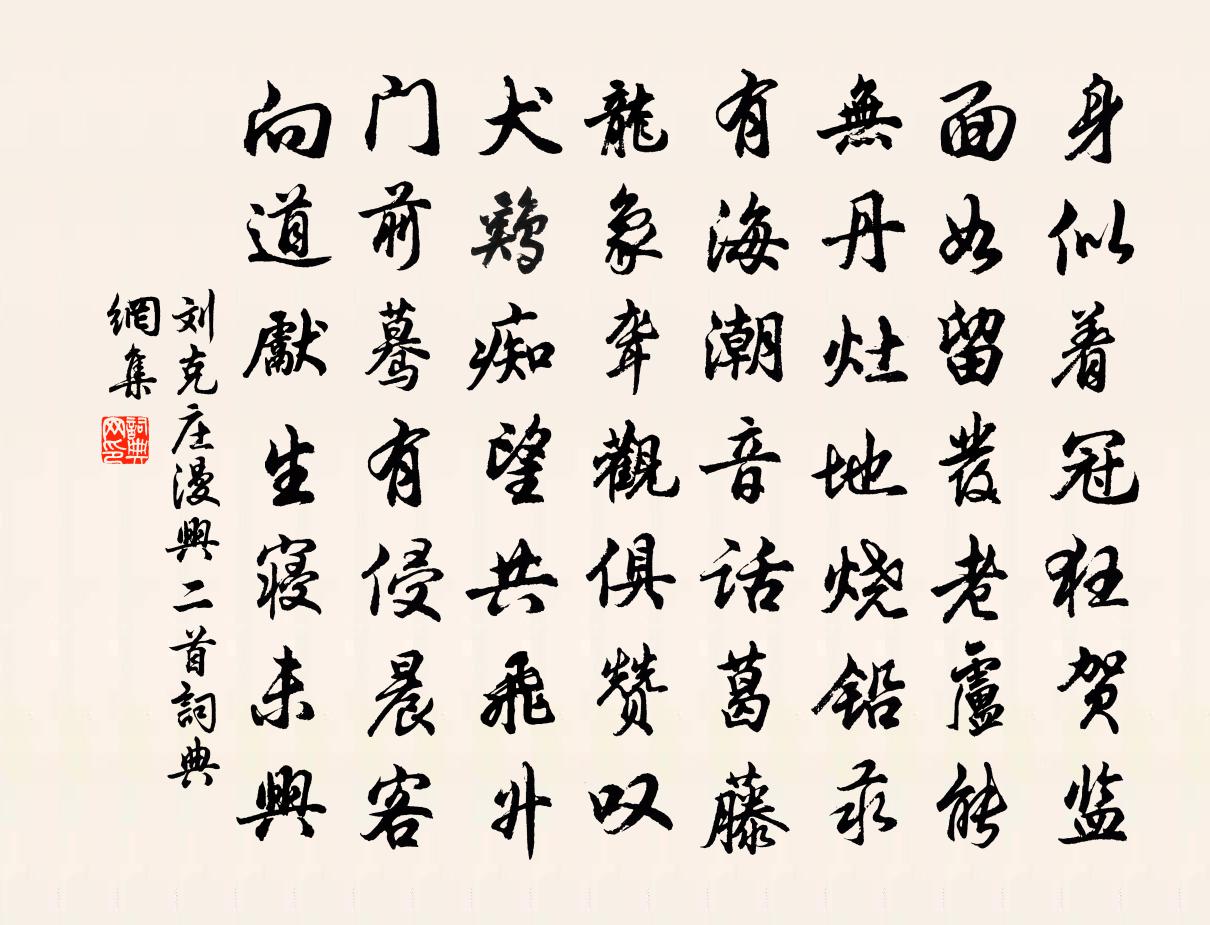 身似着冠狂贺监
面如留发老盧能
無丹灶地烧铅汞
有海潮音话葛藤
龍象聋觀俱赞叹
犬鷄痴望共飛升
门前蓦有侵晨客
向道獻生寝未興
刘克庄漫興二首詞典
網集
詞典
网印